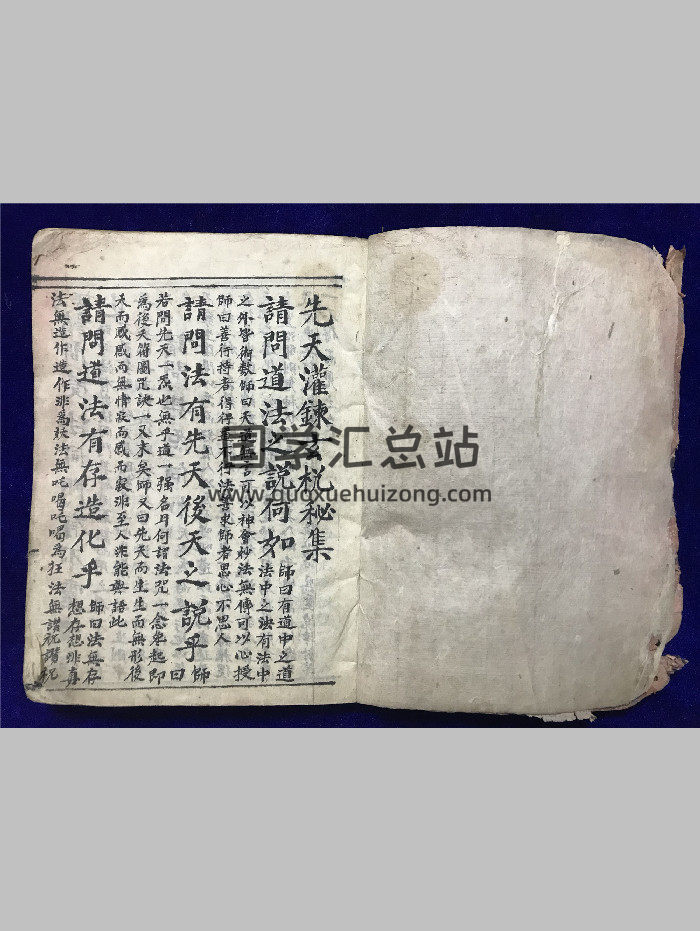 先天灌鍊玄秘集
請問道法之說何如 師曰有道中之道
法中之法有法中
之外皆術數師曰天道言可以神會妙法無傳可以心授
師曰善行持者得行不行法善求師者思心不思人
請問法有先天後天之說乎 師
曰
若問先天一炁也無乎道一強名耳何謂法咒一念未起即
為後天符圖咒訣一又末矣師又曰先天而生生而無形後
天而感感而無情寂而感而寂非至人能與語此
請問道法有存造化乎 師曰法無存
想存想非真
法無造作造作非為妖法無叱喝叱喝為狂法無祝祝
国学汇总站
www.guoxuehuizong.com